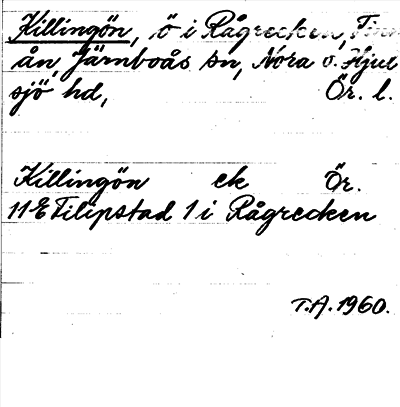 Killingön, ö i Rågrecken, Finn-
ån, Järnboås sn, Nora o. Hjul
sjö hd, Ör. l.
Killingön ek Ör.
11E Filipstad 1 i Rågrecken
T.A. 1960.